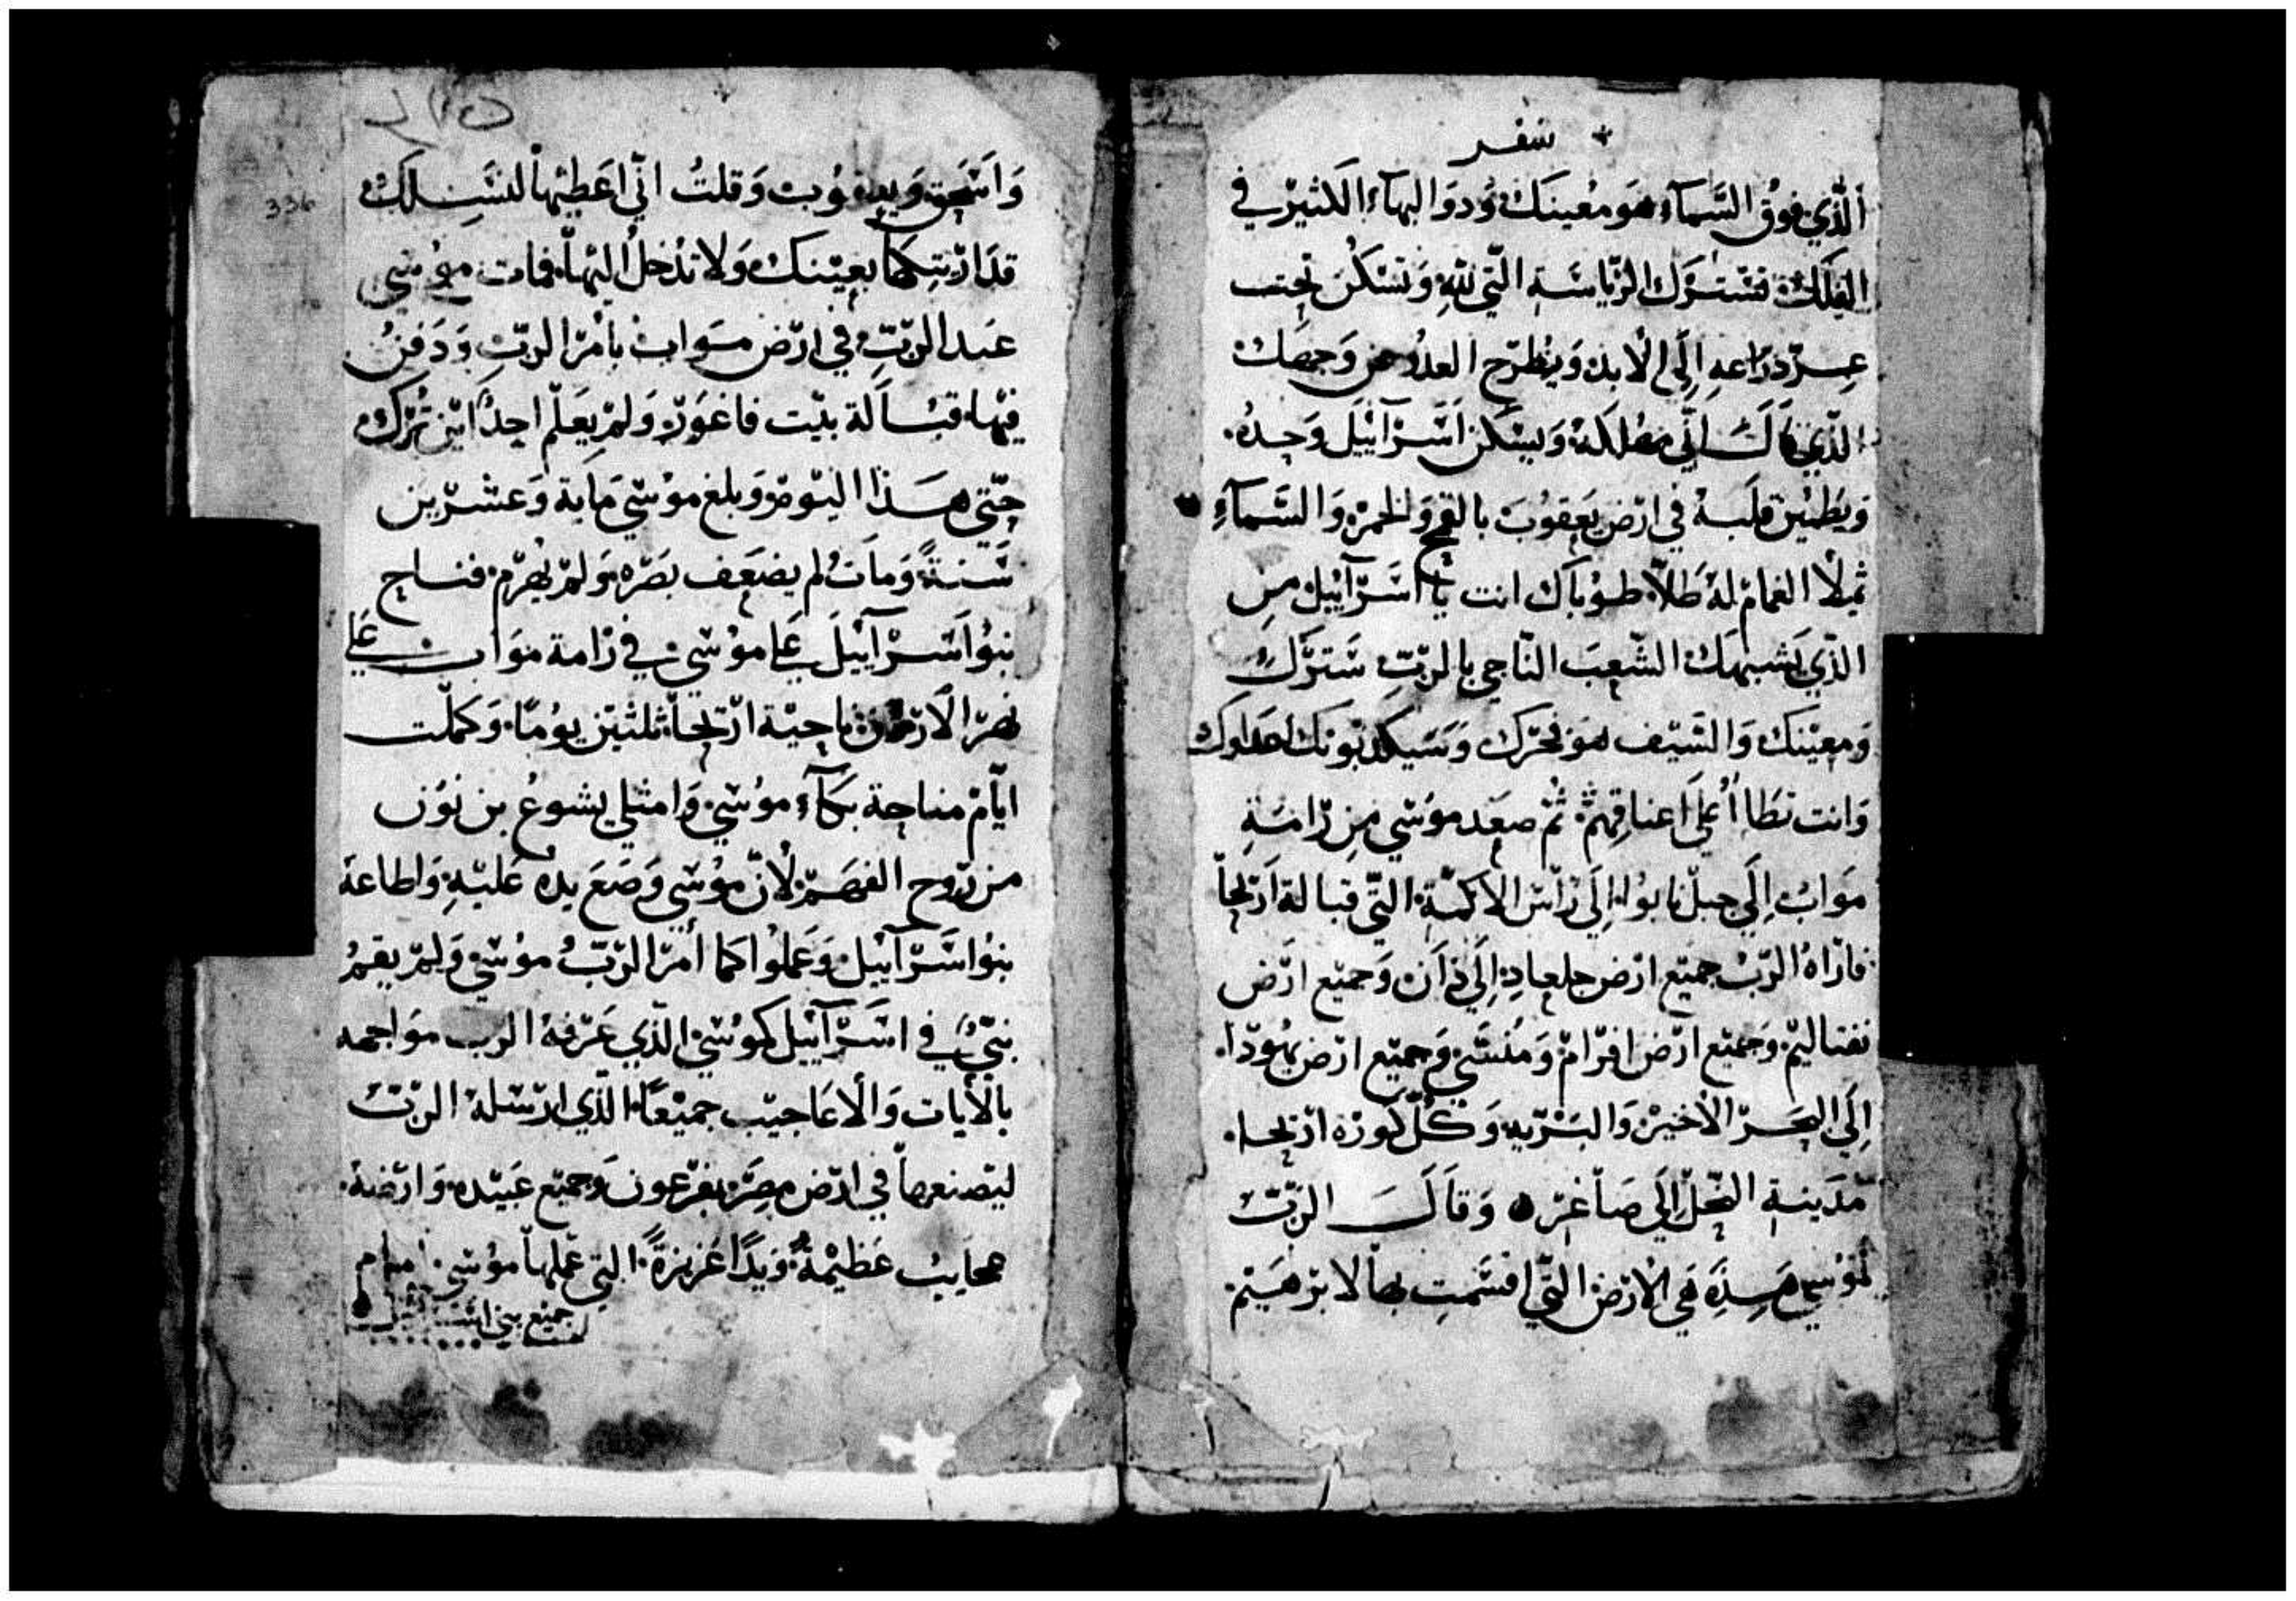 سفر
الّذي فوق السّمآء هو معينك وَ ذوَ البهآء الكثير في
الفلك فتسترك الرّياسَة الّتي للّهِ وَ تسْكن تحت
عِزّ ذرَاعه اِلَي الأبد وَيُطرَح العدُو من وَجهك
الذّي قاَلَ انّي مهلكه وَيسْكن اسَرآئيل وَحدهُ
وَيَطمئن قلبَه في ارْض يَعقوُبَ بالقمح وَ الخمر وَ السّمآءِ
ثملأ الغمام له طَلاّ طوْباك انت ياَ اسَرآئيل من
الذّي يَشبهك الشّعبَ النّاجي بالرّبّ سَترّك
وَ معيْنك وَ السّيف هوَ فخرَك وَ سَيكذبوَنك اعداوك
وَانت تطاأ عَلَي اعناقهمْ ثمّ صعَد موسَي منِ رْامَةِ
موَابْ اِلَي جبلْ نابوُ اِلَي رَأس الأكمَة التّي قبالة ارَيحاَ
فارَاهُ الرّبّ جميْع ارْض جلعادِ اِلَي ذَاَن وَ جميْع ارْض
نفتاليمْ وَجميْع ارْض افرَامْ وَ منسَّي وَ جميْع ارْض يهوُدا
اِلَي البحَرْ الأخيْر وَ البَرّيه وَ كلّ كوُرة ارَيحا
مدَينة النّخل اِلَي صَاغرْ وَ قاَلَ الرّبّ
لموُسي هَذِه هَي الأرْض التّي اقسَمت بهاَ لابرْهيَم
٢١٥
336
وَ اسَحق وَ يعقوُب وَ قلتُ انّي اعَطيْها لنسَلك
قدَ ارْيتكها بعيْنك وَ لا تدْخل اليْها فمات موُسَي
عَبد الرّبّ في ارْض موَاب بامْر الرّبّ وَ دَفنُ
فيْها قباَلة بيْت فاغوَر وَ لمْ يَعلم احدْ ايْن ترُك
حتّي هَذا اليوْم وَ بلغ موُسَي ماية وَ عشرْين
سَنةً وَ ماَت لم يضعَف بصَرهْ وَ لمْ يهرَم فناح
بنوُا اسَرآئيلَ عَلي موُسَي في رَامة موَاب عَلي
نهرْ الأرْدن ناحيْة ارْيحاَ ثلثيْن يوْماً وَ كملّت
ايّامْ مناحة بكآء موُسَي وَ امتلي يشوعُ بن نوُن
من رْوح الفهَم لأنّ موُسَي وَضعَ يدهُ عَليْهِ وَ اطاعهَ
بنوُا اسَرآئيل وَ عَملوُا كما أمَر الرّبّ موُسَي وَ لمْ يقمُ
نبيّ في اسَرآئيل كموُسَي الذّي عَرْفهُ الرب موَاجهه
بالأيات وَ الأعَاجيْب جميْعاً الّذي ارْسَلهُ الرّبّ
ليْصنعهاَ في ارْض مصَر بفرْعون وَ جميْع عَبيْده وَ ارْضهَ
عجايبُ عَظيْمةً وَ يدًا عَزيزةً التي عَملهاَ موُسَي امام
جميْع بني اسَرآئيل